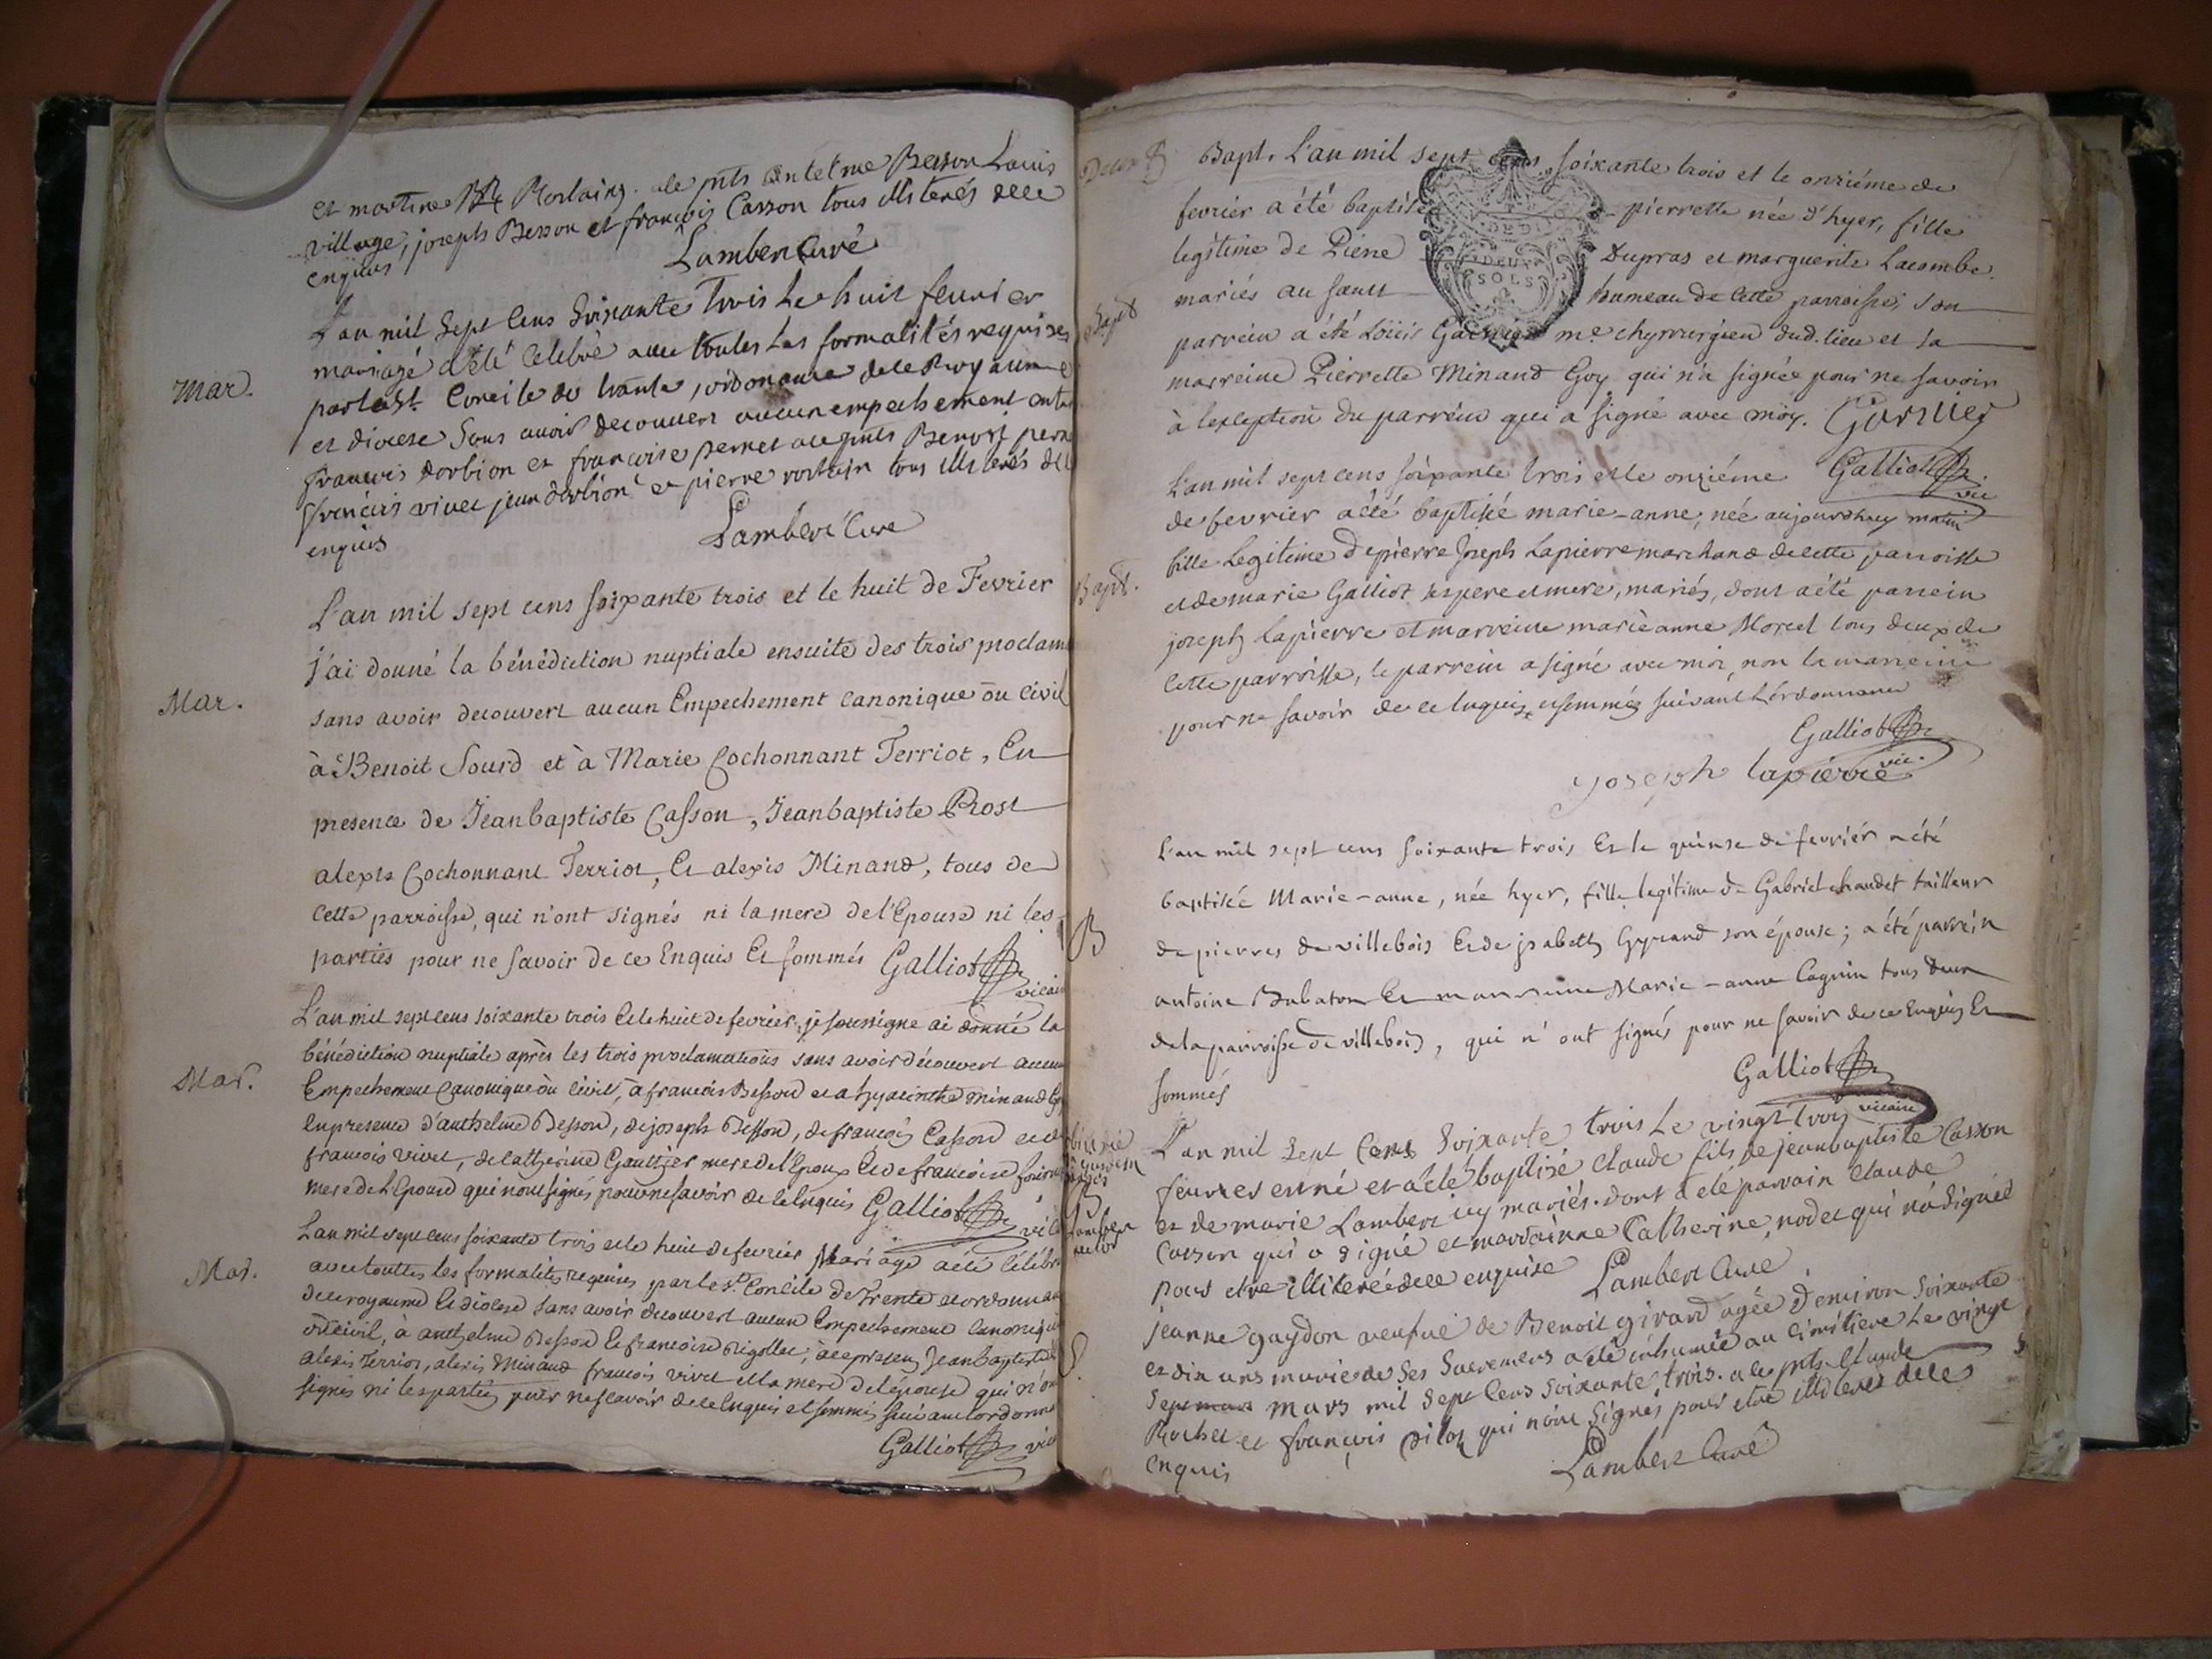 et martine Rostaing. ale pnts antelme Besson Louis
village, joseph Besson et françois Casson tous illiterés dece
enquis
Lambert Curé
Mar.
L'an mil sept Cens Soixante Trois Le huit feuvrier
mariage a été Celebré avec toutes Les formalités requises
par le St. Concile de trante, ordonance dece Royaume
et diocese Sans avoir decouvert aucun empechement entre
françois dorbion et francoise pernet ale pnts Benoit pern
françois vivet jean dorbion et pierre rostain tous illiterés de
enquis
Lambert Cure
Mar.
L'an mil sept cens soixante trois et le huit de Fevrier
j'ai donné la bénédiction nuptiale ensuite des trois proclama
sans avoir decouvert aucun Empechement canonique ou civil
à Benoit Sourd et à Marie Cochonnant Terriot, En
presence de Jeanbaptiste Casson, Jeanbaptiste Rost
alexis Cochonnant Terriot, Et alexis Minand, tous de
cette parroisse, qui n'ont signés ni la mere de l'Epouse ni les
parties pour ne savoir de ce Enquis Et sommés Galliot
vicair
Mar.
L'an mil sept cens soixante trois Et le huit de fevrier, je soussigne ai donné la
bénédiction nuptiale après les trois proclamations sans avoir découvert aucun
Empechement Canonique ou civil, à francois Besson et a hyacinthe minand Gu
En presence d'anthelme Besson, de joseph Besson, de francois Casson et de
francois vivet, de catherine Gauthier mere de l'Epoux Et de francoise
mere de L'Epouse qui n'ont signés pour ne savoir de ce Enquis Galliot
vic
Mar.
L'an mil sept cens soixante trois et le huit de fevrier Mariage a été célébré
avec touttes les formalités requises par le St. Concile de Trente et ordonnan
de ce royaume Et diocese sans avoir decouvert aucun Empechement Canonique
ou civil, à anthelme Besson Et francoise Rigollet, à ce presens Jeanbaptiste
alexis Terriot, alexis Minand francois vivet et la mere de l'épouse qui n'on
signés ni les parties pour ne scavoir de ce Enquis et sommés suivant lordonna
Galliot vic
Bapt. L'an mil sept cens soixante trois et le onziéme de
fevrier a été baptisée pierrette née d'hyer, fille
legitime de Piere Dupras et marguerite Lacombe
mariés au sault hameau de cette parroisse, son
parrein a été Loüis Garnier me. chyrurgien dud. lieu et sa
marreine Pierrette Minand Guy qui n'a signée pour ne savoir
à lexception du parrein qui a signé avec moy. Garnier
Galliot
vic
Bapt.
L'an mil sept cens soixante trois et le onziéme
de fevrier a été baptisée marie-anne, née aujourdhuy matin
fille Legitime de pierre Joseph Lapierre marchand de cette parroisse
et de marie Galliot ses pere et mere, mariés, dont a été parrein
joseph Lapierre et marreine marie anne Morel tous deux de
cette parroisse, le parrein a signé avec moi, non la marreine
pour ne savoir de ce Enquis, et sommés suivant L'ordonnance
Galliot
vic.
joseph lapierre
B
L'an mil sept cens soixante trois Et le quinse de fevriér a été
baptisée Marie-anne, née hyer, fille legitime de Gabriel chaudet tailleur
de pierres de villebois Et de jsabeth Gyrand son épouse; a été parrein
antoine Babaton Et marreine Marie-anne Cagnin tous deux
de la parroisse de villebois, qui n'ont signés pour ne savoir de ce Enquis Et
sommés
Galliot
vicaire
L'an mil sept Cens Soixante trois Le vingt trois
feuvrier est né et a été baptisé Claude fils de jeanbaptiste Casson
et de marie Lambert icy mariés. dont a été parrain Claude
Casson qui a signé et mardainne Catherine nodet qui na signée
pour etre illiterée dece enquise Lambert Curé
S.
jeanne gaydon veufue de Benoit girard agée d'environ Soixante
et dix ans munie de Ses Sacremens a été inhumée au Cimitiere Le vingt
Sept mars mil Sept Cens Soixante trois. ale pnts Claude
Rochet et françois pilot qui n'ont signés pour etre illiterés dece
enquis
Lambert Curé